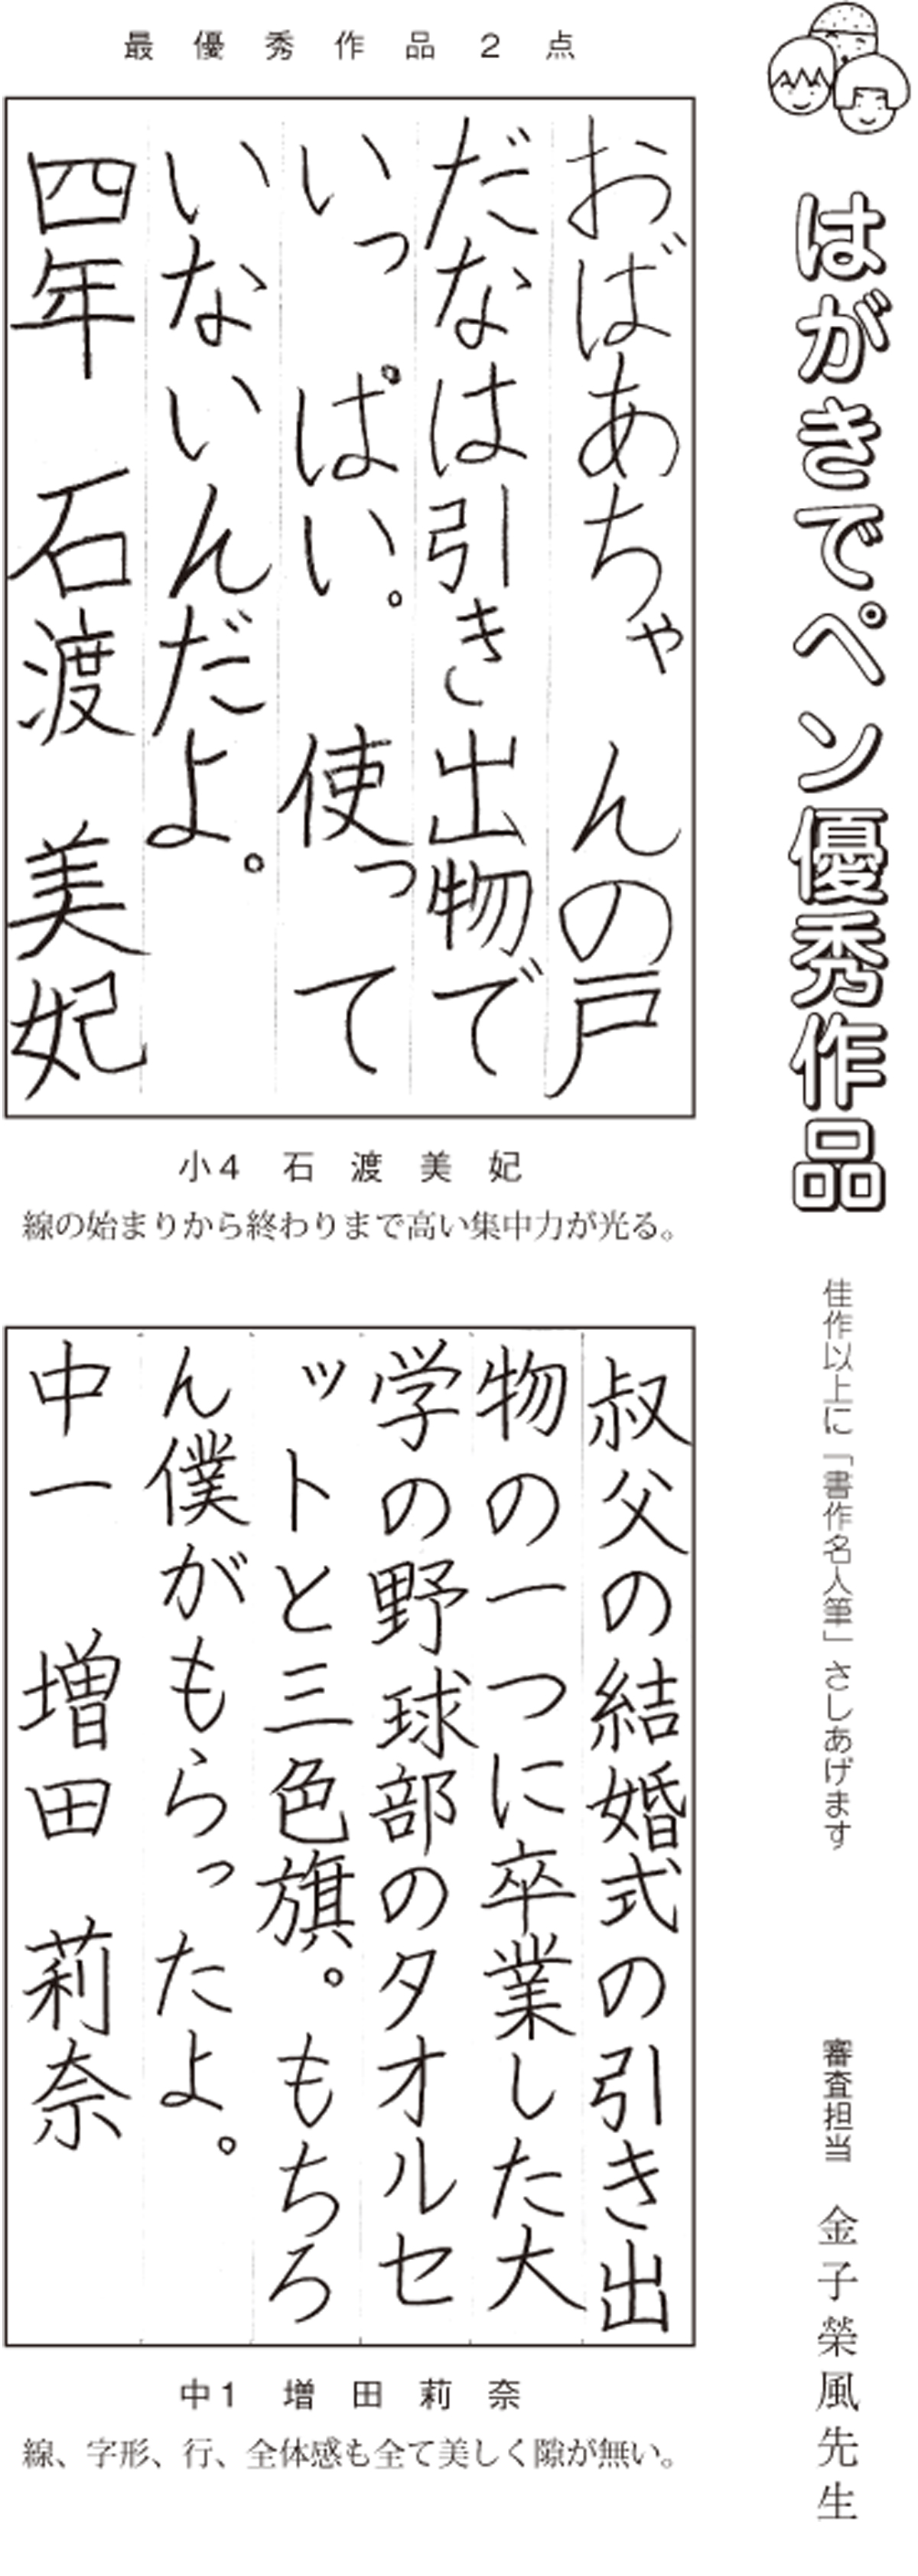 はがきでペン優秀作品
佳作以上に「書作名人筆」さしあげます
審査担当 金子榮風先生
最優秀作品2点
おばあちゃんの戸
だなは引き出物で
いっぱい。使って
いないんだよ。
四年 石渡 美妃
小4 石渡美妃
線の始まりから終わりまで高い集中力が光る。
叔父の結婚式の引き出
物の一つに卒業した大
学の野球部のタオルセ
ットと三色旗。もちろ
ん僕がもらったよ。
中一 増田 莉奈
中1 増田莉奈
線、字形、行、全体感も全て美しく隙が無い。